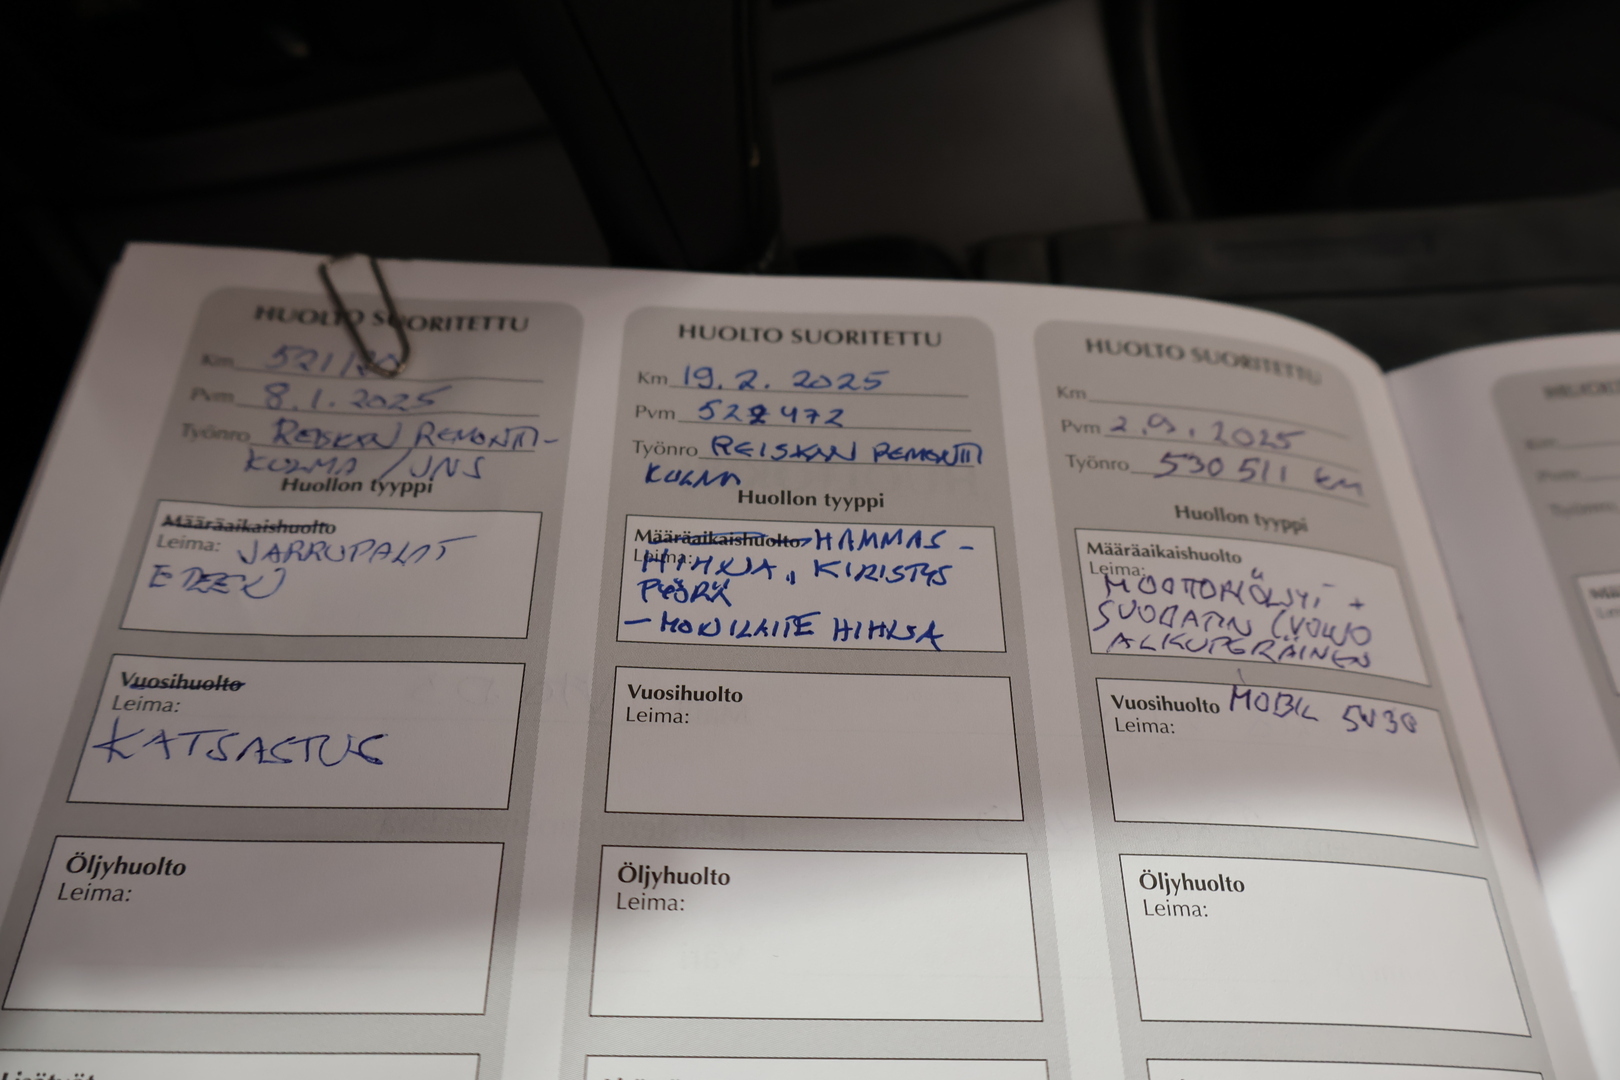 HUOLTO SUORITETTU
Km 521/
Pvm 8.1.2025
Työnro REISKAN REMONTTI-
KULMA / JNS
Huollon tyyppi
Määräaikaishuolto
Leima: JARRUPALAT
EDEEN
Vuosihuolto
Leima:
KATSASTUS
Öljyhuolto
Leima:
Lisätyöt
HUOLTO SUORITETTU
Km 19.2.2025
Pvm 522 472
Työnro REISKAN REMONTTI
KULMA
Huollon tyyppi
Määräaikaishuolto HAMMAS-
Leima:
HIHNA, KIRISTYS
PYÖRÄ
- MONILAITE HIHNA
Vuosihuolto
Leima:
Öljyhuolto
Leima:
HUOLTO SUORITETTU
Km
Pvm 2.9.2025
Työnro 530 511 km
Huollon tyyppi
Määräaikaishuolto
Leima:
MOOTTORIÖLJYT +
SUODATIN (VOLVO
ALKUPERÄINEN
Vuosihuolto MOBIL 5W30
Leima:
Öljyhuolto
Leima: